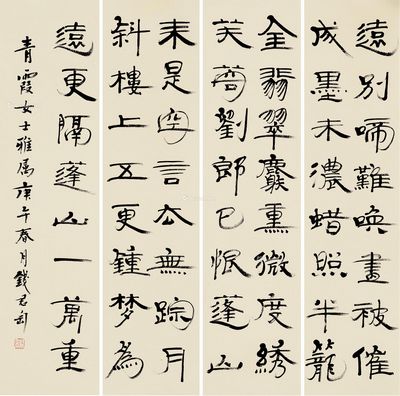 遠別啼難喚書被催
成墨未濃蜡照半籠
金翡翠麝熏微度綉
芙蓉劉郎已恨蓬山
来是空言去無踪月
斜樓上五更鍾梦為
遠更隔蓬山一萬重
青霞女士雅属庚午春月錢君匋